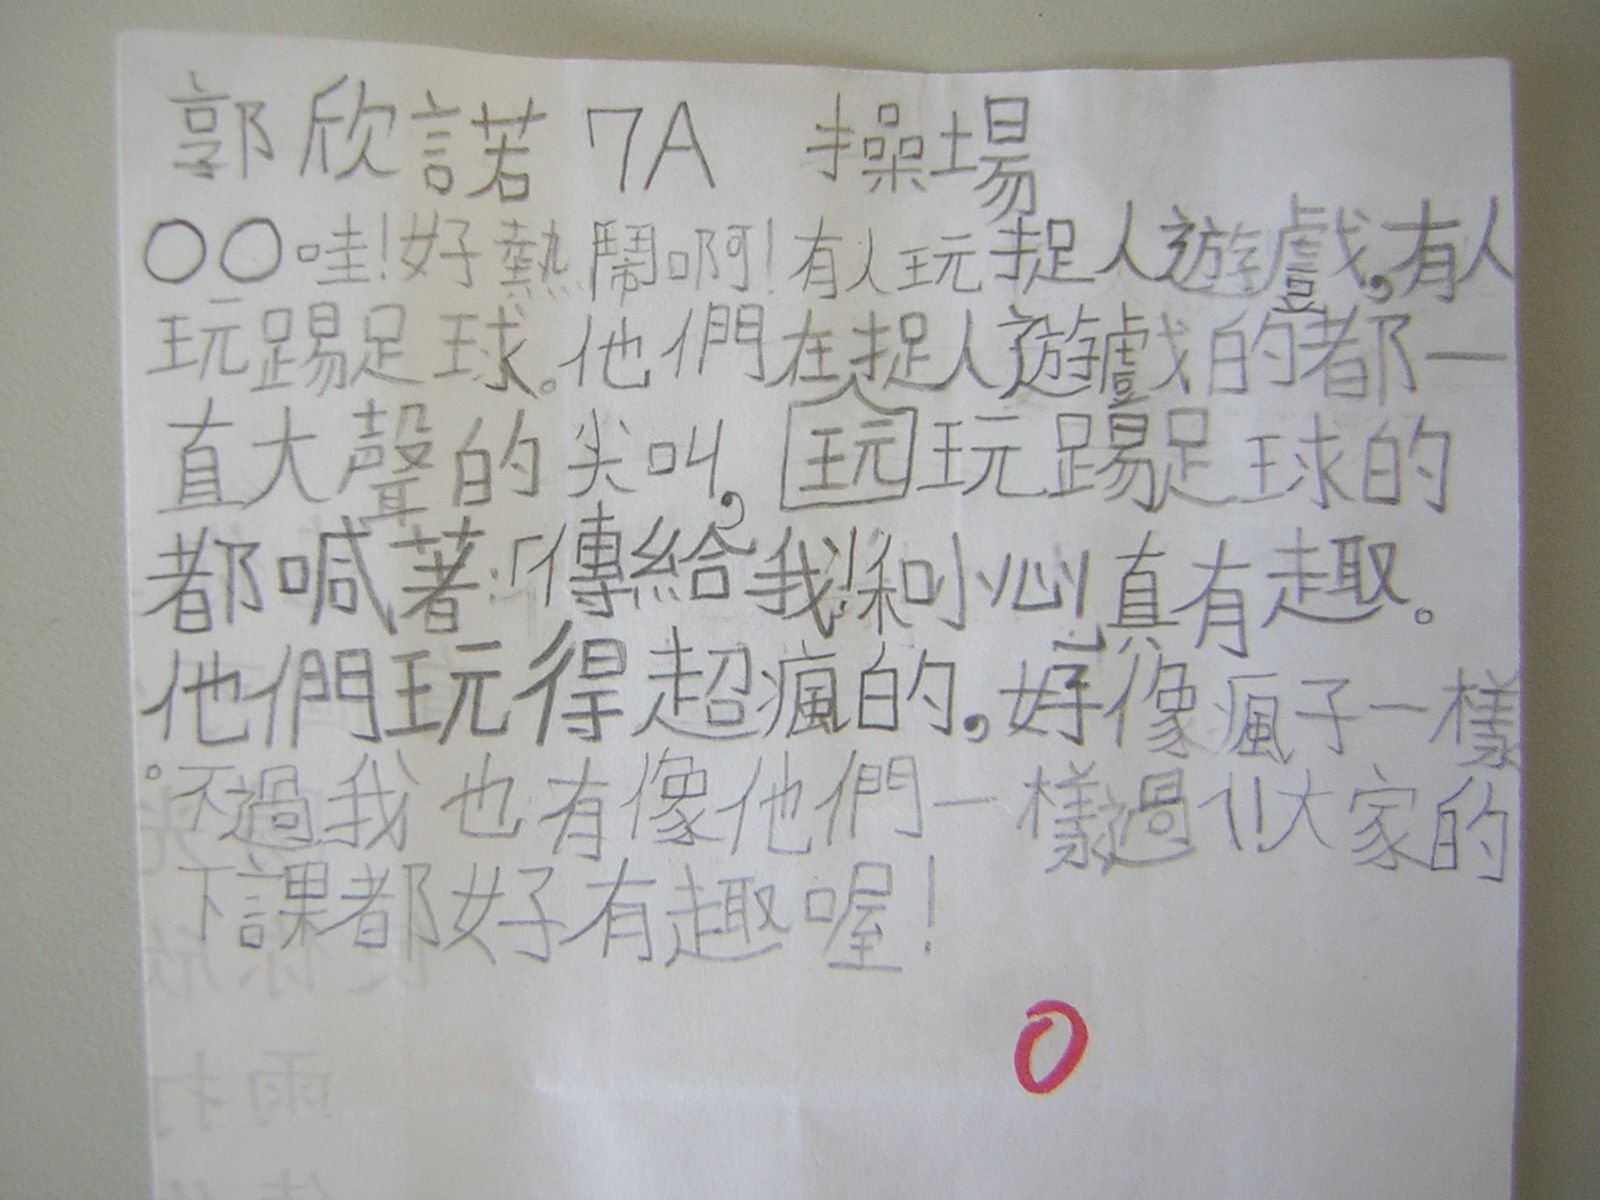 郭欣諾 7A 操場
〇〇哇!好熱鬧啊!有人玩捉人遊戲,有人
玩踢足球。他們在捉人遊戲的都一
直大聲的尖叫,玩玩踢足球的
都喊著:「傳給我!和小心!」真有趣。
他們玩得超瘋的,好像瘋子一樣
。不過我也有像他們一樣過!大家的
下課都好有趣喔!